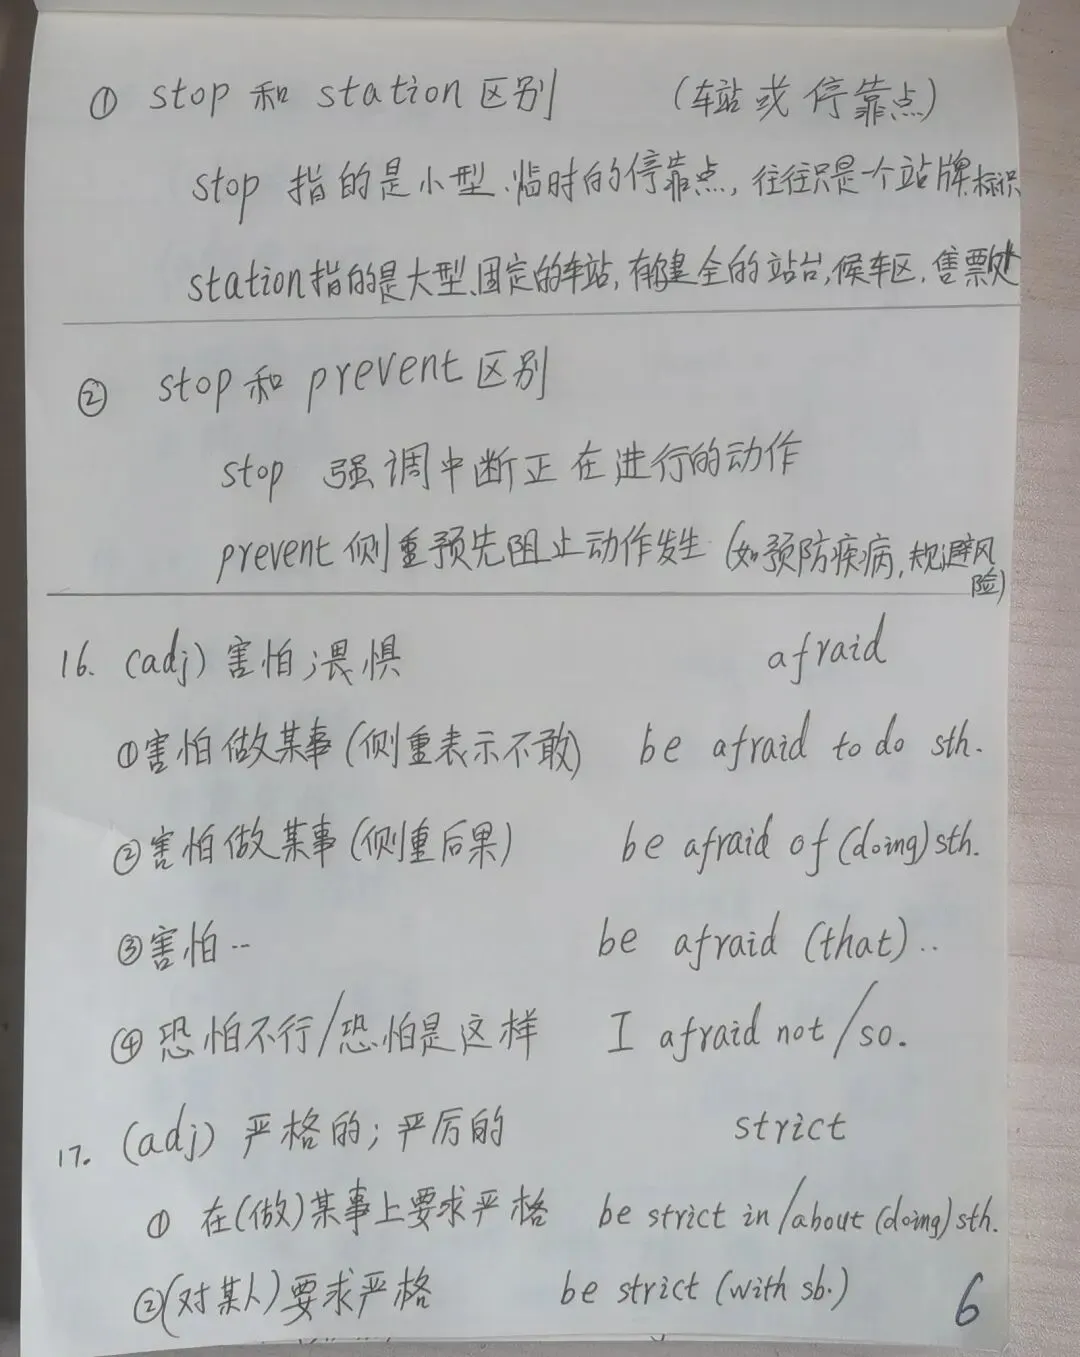 ① stop 和 station 区别 (车站 或 停靠点)
stop 指的是小型、临时的停靠点, 往往只是一个站牌标识
station指的是大型、固定的车站, 有健全的站台, 候车区, 售票处
② stop 和 prevent 区别
stop 强调中断正在进行的动作
prevent 侧重预先阻止动作发生 (如预防疾病, 规避风险)
16. (adj) 害怕;畏惧 afraid
①害怕做某事(侧重表示不敢) be afraid to do sth.
②害怕做某事(侧重后果) be afraid of (doing) sth.
③害怕.. be afraid (that)..
④恐怕不行/恐怕是这样 I afraid not/so.
17. (adj) 严格的; 严厉的 strict
① 在(做)某事上要求严格 be strict in/about (doing) sth.
②(对某人)要求严格 be strict (with sb.)
6